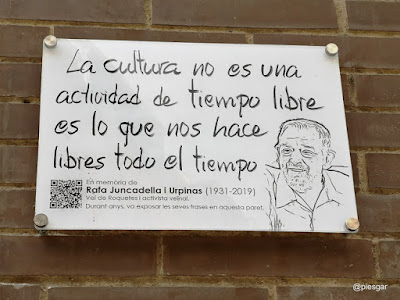 La cultura no es una
actividad de tiempo libre
es lo que nos hace
libres todo el tiempo
En memòria de
Rafa Juncadella i Urpinas (1931-2019)
Veí de Roquetes i activista veïnal.
Durant anys, va exposar les seves frases en aquesta paret.
@piesgar